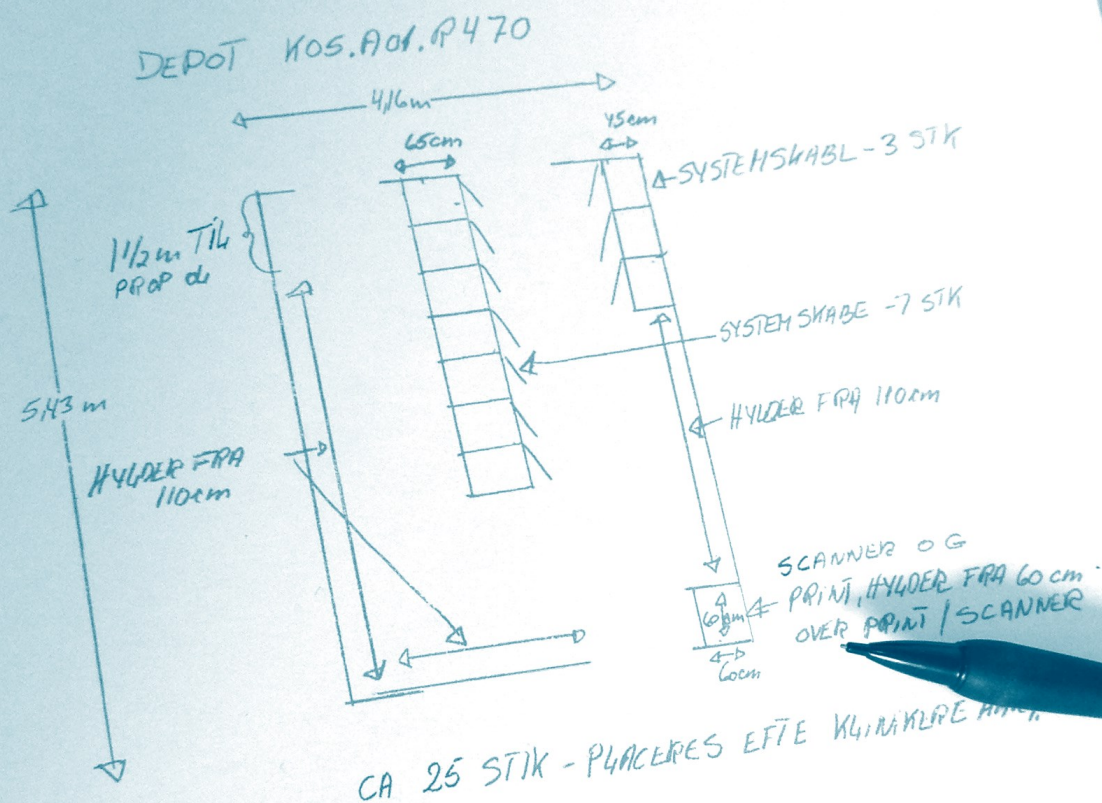 DEPOT KOS.Aof.R470
4,16m
65cm
45cm
SYSTEMSKABL-3 STK
1 1/2 m TIL
PROP
SYSTEM SKABE -7 STK
5,43 m
HYLDER FRA 110cm
HYLDER FRA
110cm
SCANNER OG
PRINT, HYLDER FRA 60 cm
OVER PRINT / SCANNER
60cm
60cm
CA 25 STIK - PLACERES EFTE